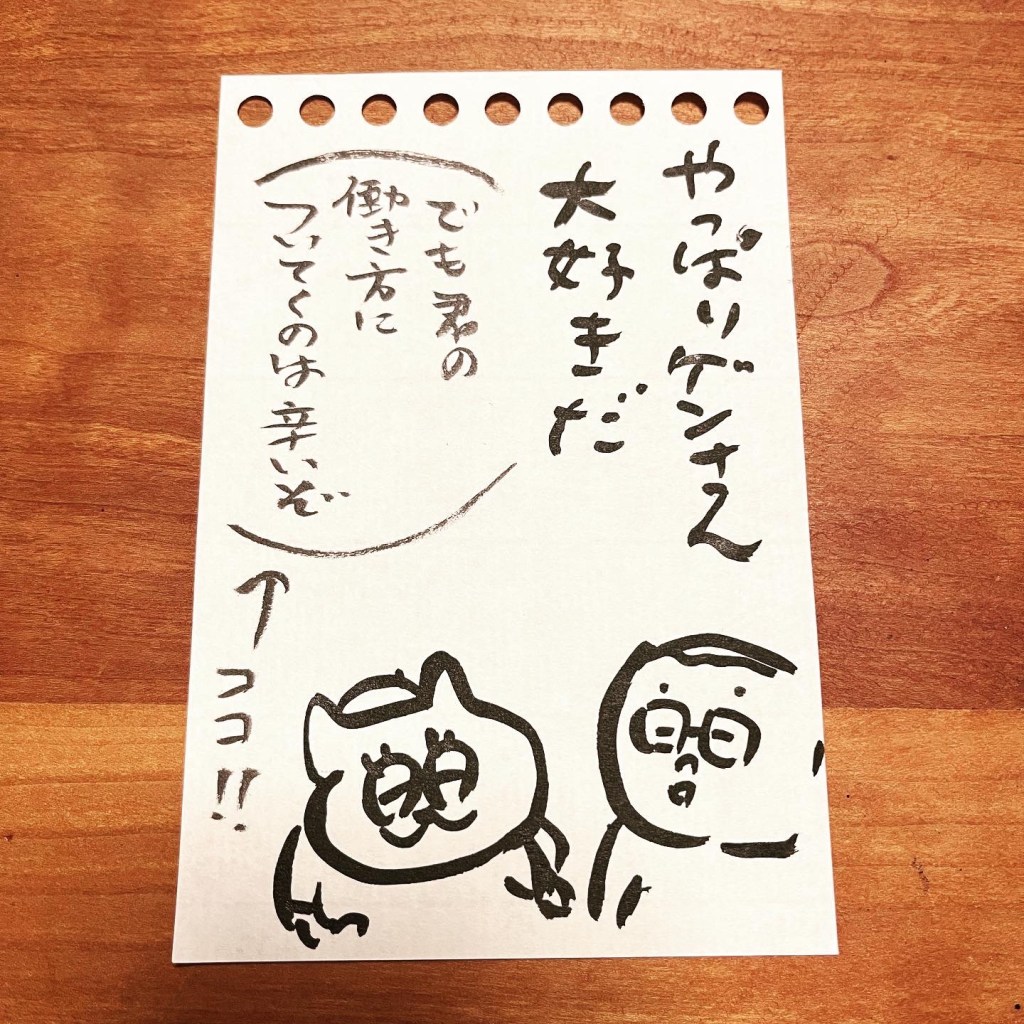 やっぱりゲンさん
大好きだ
(でも君の
働き方に
ついてくのは辛いぞ)
↑ココ!!